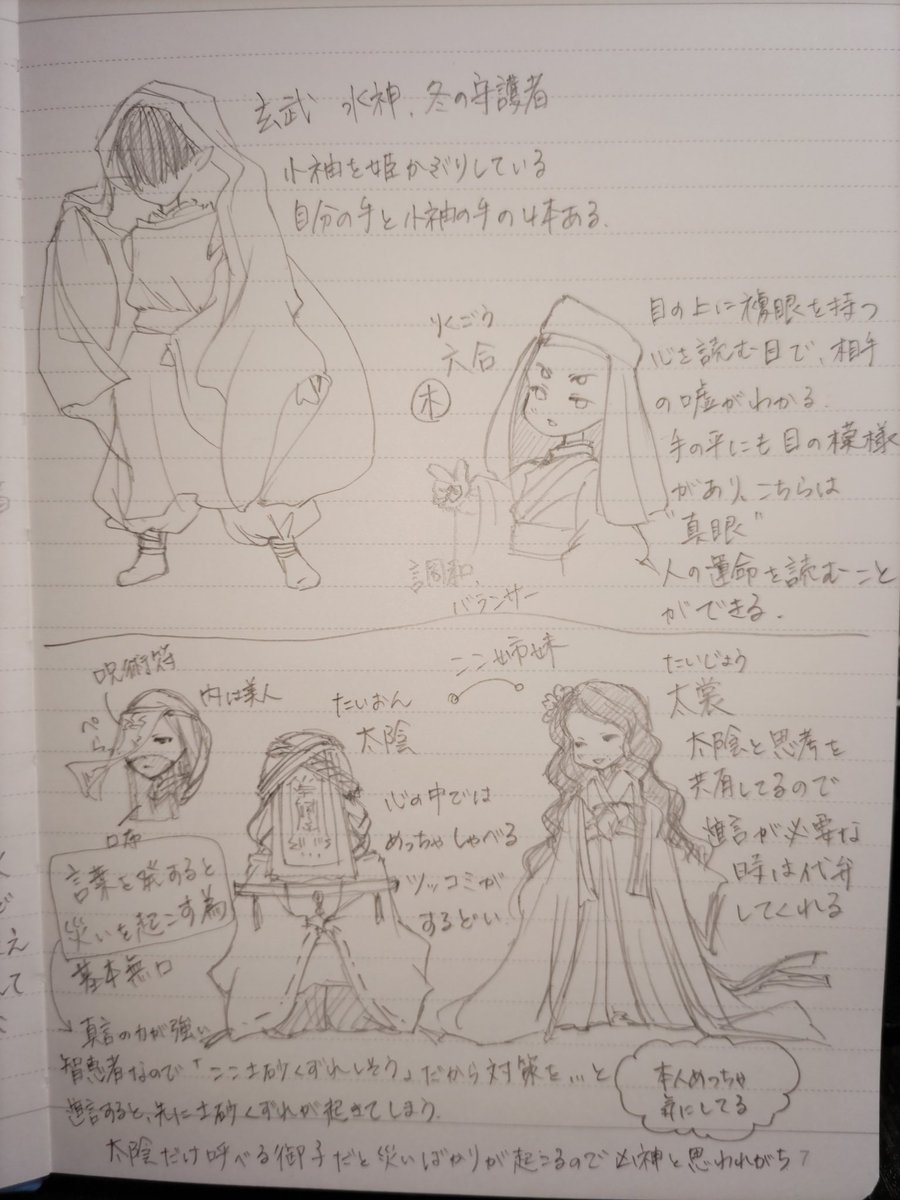 玄武 水神、冬の守護者
小袖を姫かぶりしている
自分の手と小袖の手の4本ある。
りくごう
六合
木
目の上に複眼を持つ
心を読む目で、相手
の嘘がわかる.
手の平にも目の模様
があり、こちらは
"真眼"
人の運命を読むこと
ができる.
調和、
バランサー
ここ姉妹
呪術符
ぺら
内は美人
口布
たいおん
太陰
心の中では
めっちゃしゃべる
ツッコミが
するどい
たいじょう
太裳
太陰と思考を
共有してるので
進言が必要な
時は代弁
してくれる
言葉を発すると
災いを起こす為
基本無口
真言の力が強い
智恵者なので「ここ土砂くずれしそう」だから対策を...と
進言すると、先に土砂くずれが起きてしまう.
本人めっちゃ
気にしてる
太陰だけ呼べる御子だと災いばかりが起こるので凶神と思われがち